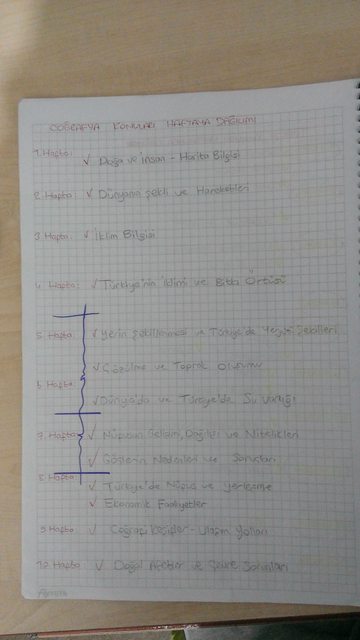 COĞRAFYA KONULARI HAFTALIK DAĞILIMI
1. Hafta: ✓ Doğa ve İnsan - Harita Bilgisi
2. Hafta: ✓ Dünyanın Şekli ve Hareketleri
3. Hafta: ✓ İklim Bilgisi
4. Hafta: ✓ Türkiye'nin İklimi ve Bitki Örtüsü
5. Hafta: ✓ Yerin Şekillenmesi ve Türkiye'de Yerşekilleri
✓ Çözülme ve Toprak Oluşumu
6. Hafta
✓ Dünya'da ve Türkiye'de Su Varlığı
7. Hafta ✓ Nüfusun Gelişimi, Dağılışı ve Nitelikleri
✓ Göçlerin Nedenleri ve Sonuçları
8. Hafta:
✓ Türkiye'de Nüfus ve Yerleşme
✓ Ekonomik Faaliyetler
9. Hafta ✓ Coğrafi Keşifler - Ulaşım Yolları
10. Hafta ✓ Doğal Afetler ve Çevre Sorunları